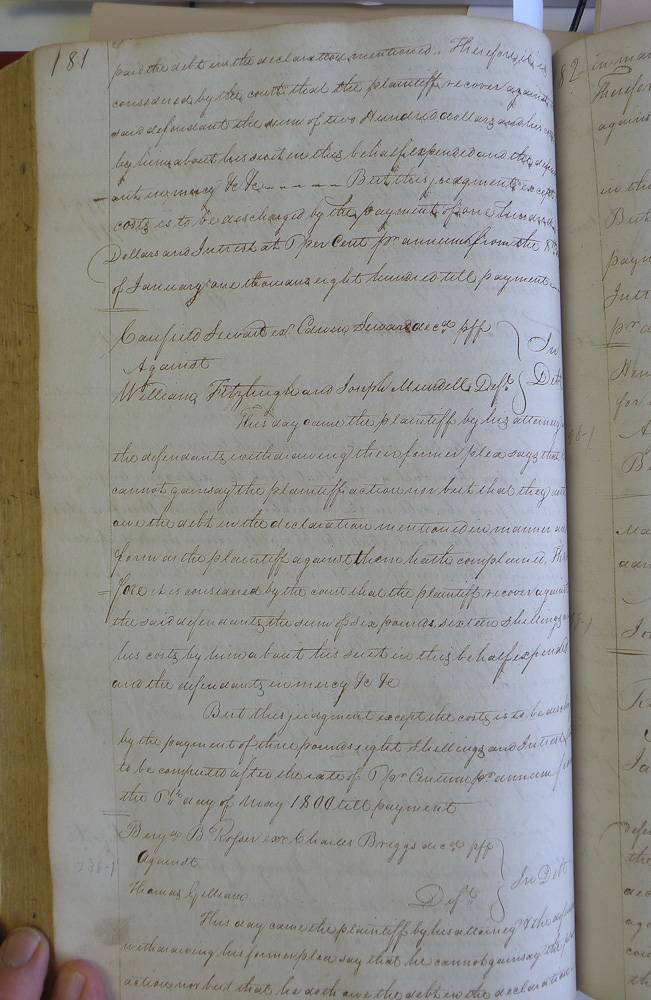 181
paid the debt in the declaration mentioned. Therefore it is
considered by the court that the plaintiff recover against
said defendant the sum of two Hundred dollars and his costs
by him about his suit in this behalf expended and the defend
ant in mercy &c &c - - - - - But this judgment except
costs is to be discharged by the payment of one hundred
Dollars and Interest at 6 per Cent pr annum from the
of January one thousand eight hundred till payment
Canfield Seward exr Edwin Seward decd plff
Against
William Fitzhugh and Joseph Mundell Defts
In
Debt
This day came the plaintiff by his attorney
the defendants withdrawing their former plea says that
cannot gainsay the plaintiffs action nor but that they
owe the debt in the declaration mentioned in manner and
form as the plaintiff against them hath complained. There
fore it is considered by the court that the plaintiff recover against
the said defendants the sum of six pounds sixteen shillings and
his costs by him about his suit in this behalf expended
and the defendants in mercy &c &c
But this judgment except the costs is to be
by the payment of three pounds eight shillings and Interest
to be computed after the rate of 6 pr Centum pr annum
the day of May 1800 till payment
exr Charles Briggs decd plff
Against
In Debt
Thomas Deft
This day came the plaintiff by his attorney & the
withdrawing his former plea say that he cannot gainsay the
action nor but that he doth owe the debt in the declaration
82